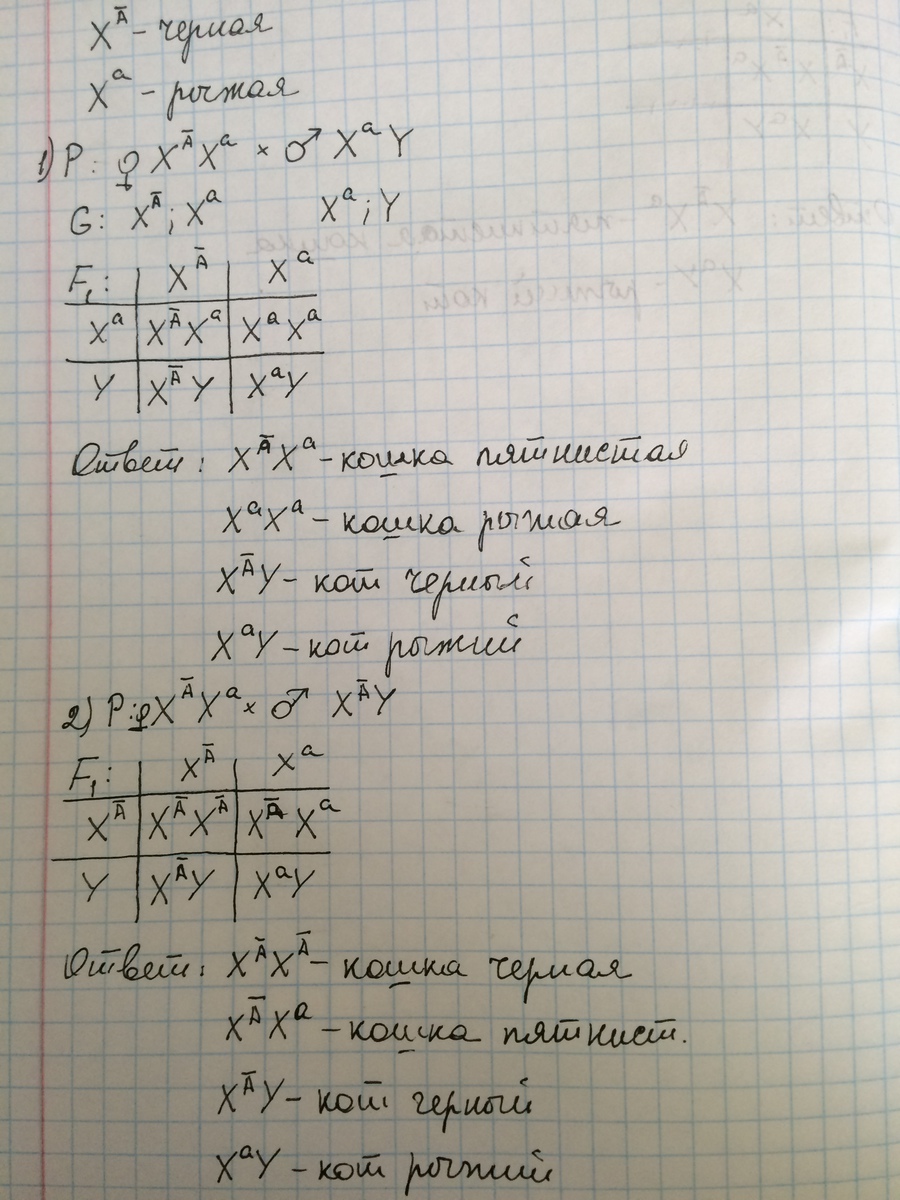 X^Ā - черная
X^a - рыжая
1) P: ♀ X^Ā X^a × ♂ X^a Y
G: X^Ā ; X^a X^a ; Y
F₁: X^Ā X^a
X^a X^Ā X^a X^a X^a
Y X^Ā Y X^a Y
Ответ: X^Ā X^a - кошка пятнистая
X^a X^a - кошка рыжая
X^Ā Y - кот черный
X^a Y - кот рыжий
2) P: ♀ X^Ā X^a × ♂ X^Ā Y
F₁: X^Ā X^a
X^Ā X^Ā X^Ā X^Ā X^a
Y X^Ā Y X^a Y
Ответ: X^Ā X^Ā - кошка черная
X^Ā X^a - кошка пятнист.
X^Ā Y - кот черный
X^a Y - кот рыжий